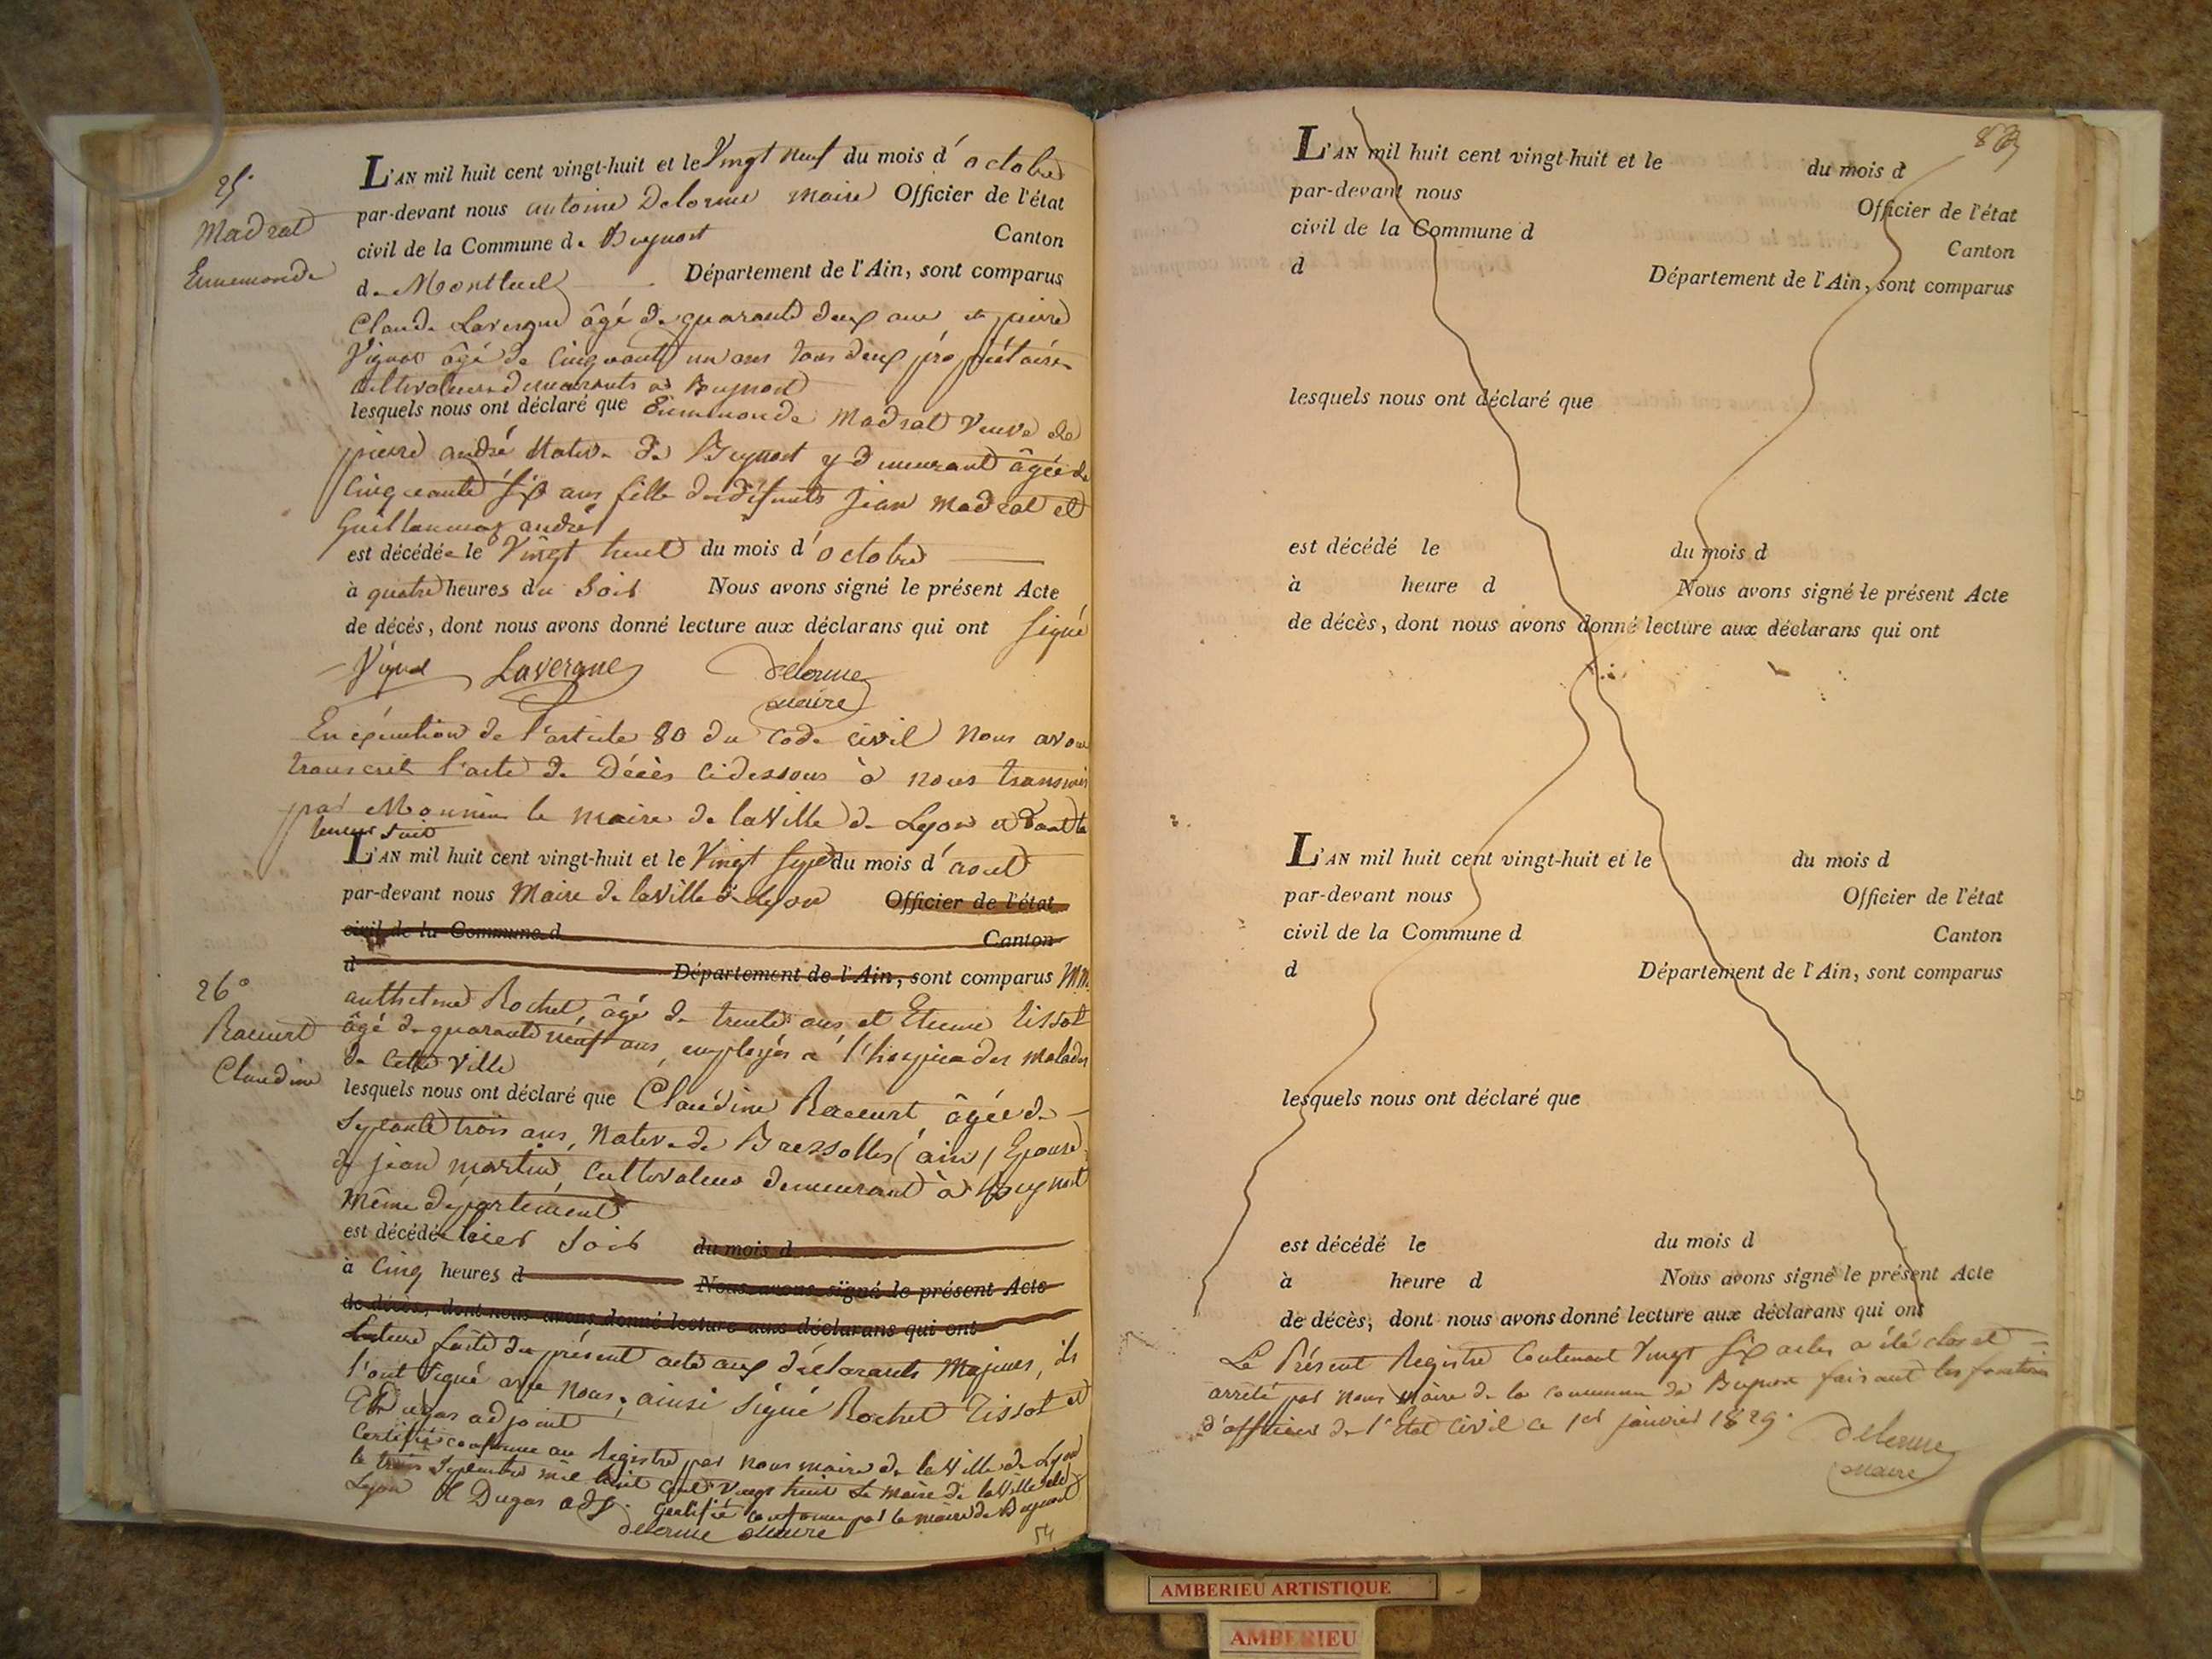 25.
Madrat
Ennemonde
L'AN mil huit cent vingt-huit et le Vingt neuf du mois d'octobre
par-devant nous antoine Delorme maire Officier de l'état
civil de la Commune de Beynost Canton
de Montluel Département de l'Ain, sont comparus
Claude Lavergne âgé de quarante deux ans et pierre
Vignat âgé de Cinquante un ans tous deux propriétaires
cultivateurs demeurants a Beynost
lesquels nous ont déclaré que Ennemonde Madrat Veuve de
pierre andré Native de Beynost y demeurant âgée de
Cinquante Six ans fille des défunts jean madrat et
Guillaumaz andré
est décédée le Vingt huit du mois d'octobre
à quatre heures du Soir Nous avons signé le présent Acte
de décés, dont nous avons donné lecture aux déclarans qui ont Signé
Vignat Lavergne Delorme
maire
En exécution de l'article 80 du Code civil Nous avons
transcrit l'acte de Décès cidessous à nous transmis
par Monsieur le maire de la Ville de Lyon et dont la
teneur Suit
L'AN mil huit cent vingt-huit et le Vingt Sept du mois d'aout
par-devant nous Maire de la Ville de Lyon Officier de l'état
civil de la Commune d Canton
d Département de l'Ain, sont comparus MM.
26°
Racurt
Claudine
anthelme Rochet, âgé de trente ans et Etienne Tissot
âgé de quarante neuf ans, employés à l'hospice des malades
de Cette Ville
lesquels nous ont déclaré que Claudine Racurt, âgée de
Septante trois ans, Native de Bressolles (ain) Epouse
de jean martin, Cultivateur demeurant à Beynost
Même département
est décédée hier Soir du mois d
à Cinq heures d Nous avons signé le présent Acte
de décès, dont nous avons donné lecture aux déclarans qui ont
Lecture faite du présent acte aux déclarants Majeurs, ils
l'ont signé avec nous; ainsi Signé Rochet Tissot et
Dugas adjoint
Certifié conforme au Registre par nous maire de la Ville de Lyon
le trois Septembre mil huit Cent Vingt huit Le Maire de la Ville de
Lyon Dugas adj. Certifié Conforme par le maire de Beynost
Delorme maire
54
L'AN mil huit cent vingt-huit et le du mois d
par-devant nous Officier de l'état
civil de la Commune d Canton
d Département de l'Ain, sont comparus
lesquels nous ont déclaré que
est décédé le du mois d
à heure d Nous avons signé le présent Acte
de décès, dont nous avons donné lecture aux déclarans qui ont
L'AN mil huit cent vingt-huit et le du mois d
par-devant nous Officier de l'état
civil de la Commune d Canton
d Département de l'Ain, sont comparus
lesquels nous ont déclaré que
est décédé le du mois d
à heure d Nous avons signé le présent Acte
de décès, dont nous avons donné lecture aux déclarans qui ont
Le Présent Registre Contenant Vingt Six actes a été clos et
arrêté par nous Maire de la Commune de Beynost faisant les fonctions
d'officier de l'Etat Civil ce 1er janvier 1829.
Delorme
maire
AMBERIEU ARTISTIQUE
AMBERIEU